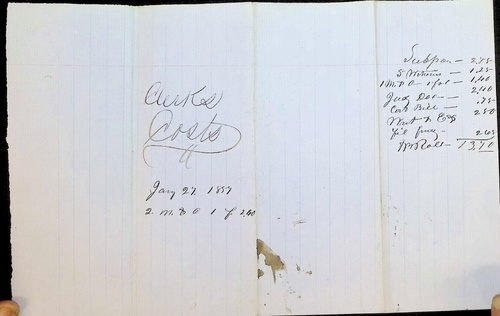 Clerks
Costs
Jany 27. 1857
2. M. & O 1 f 2,40
Subpoe — 2,75
5 Witness — 1,25
1 M. & O — 1 fol — 1,40
Judg Doc — 2,40
Cost Bill — ,75
Writ & 2.50
fil 2.65
Roll — 13,70